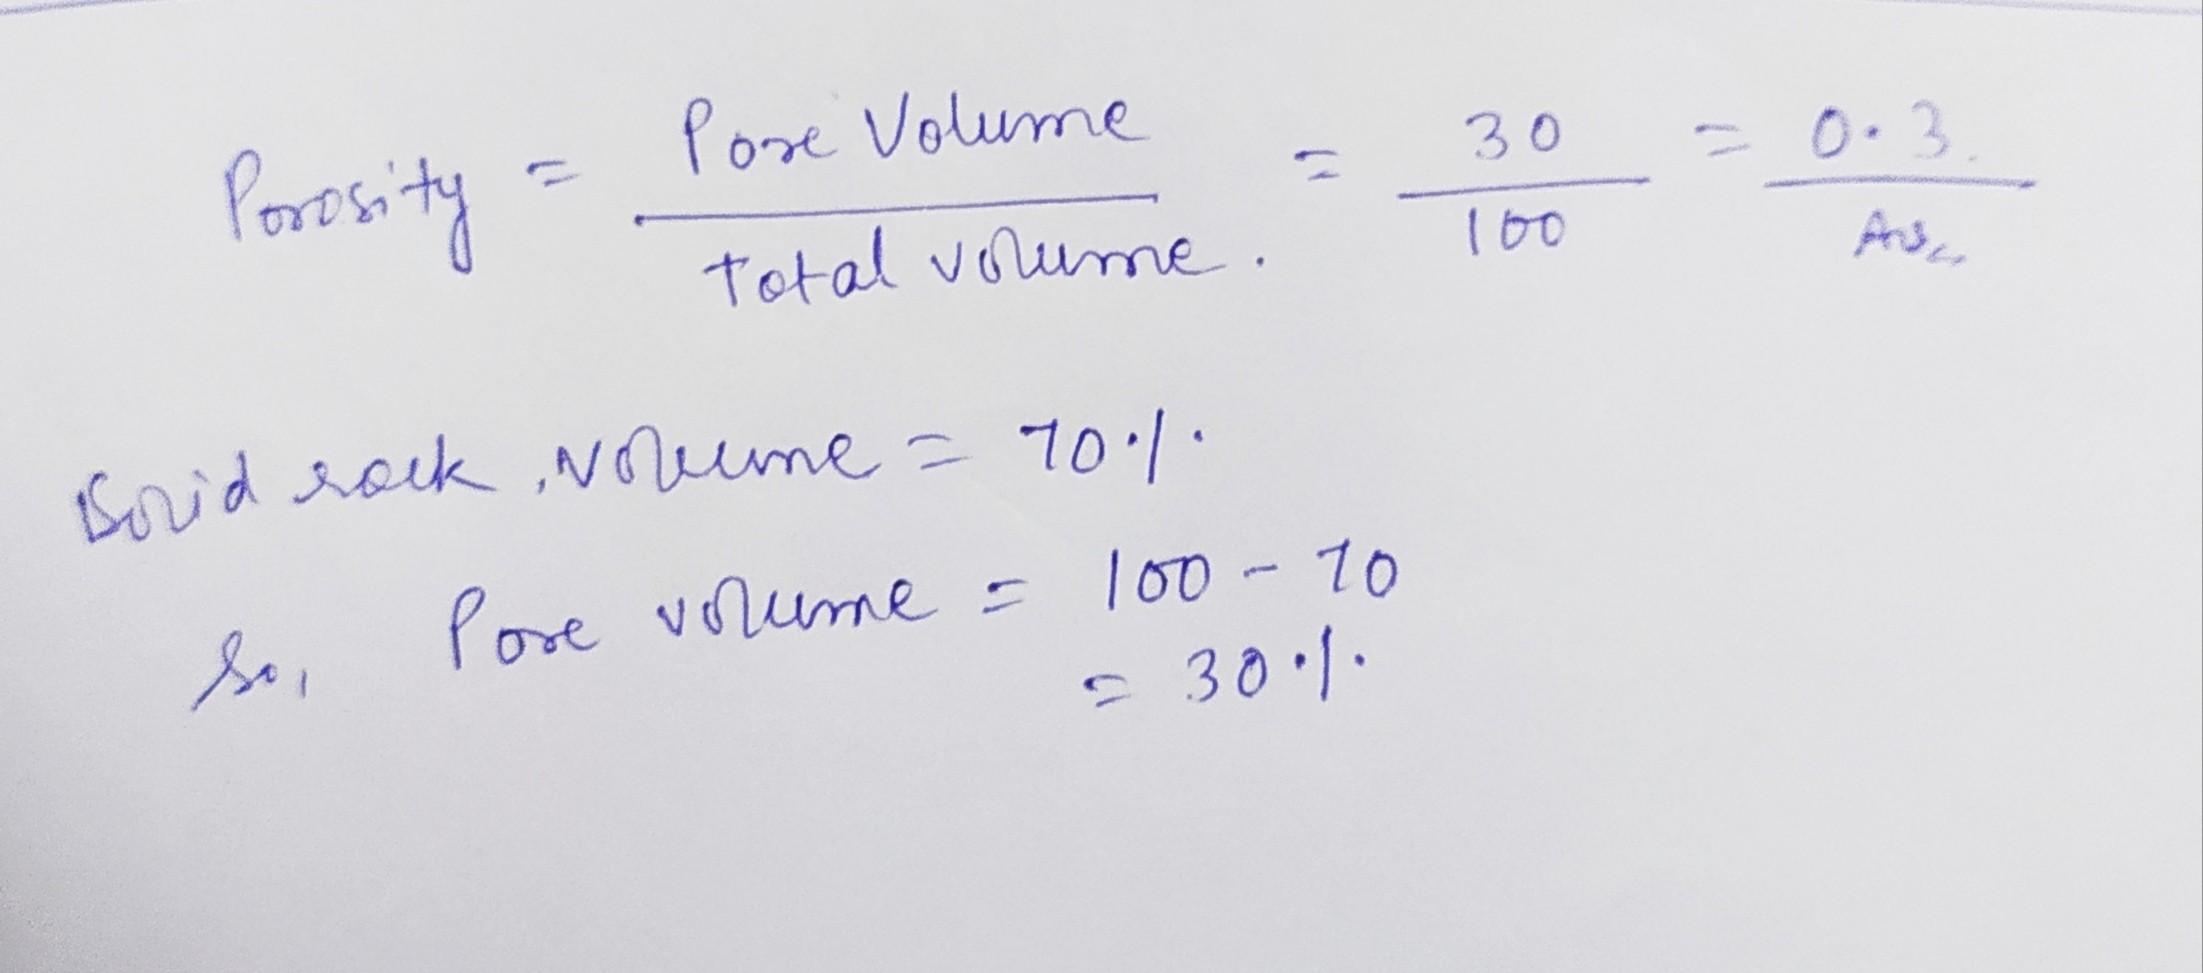 Porosity = Pore Volume / Total volume. = 30 / 100 = 0.3.
Ans
Solid rock volume = 70%.
So, Pore volume = 100 - 70
= 30%.